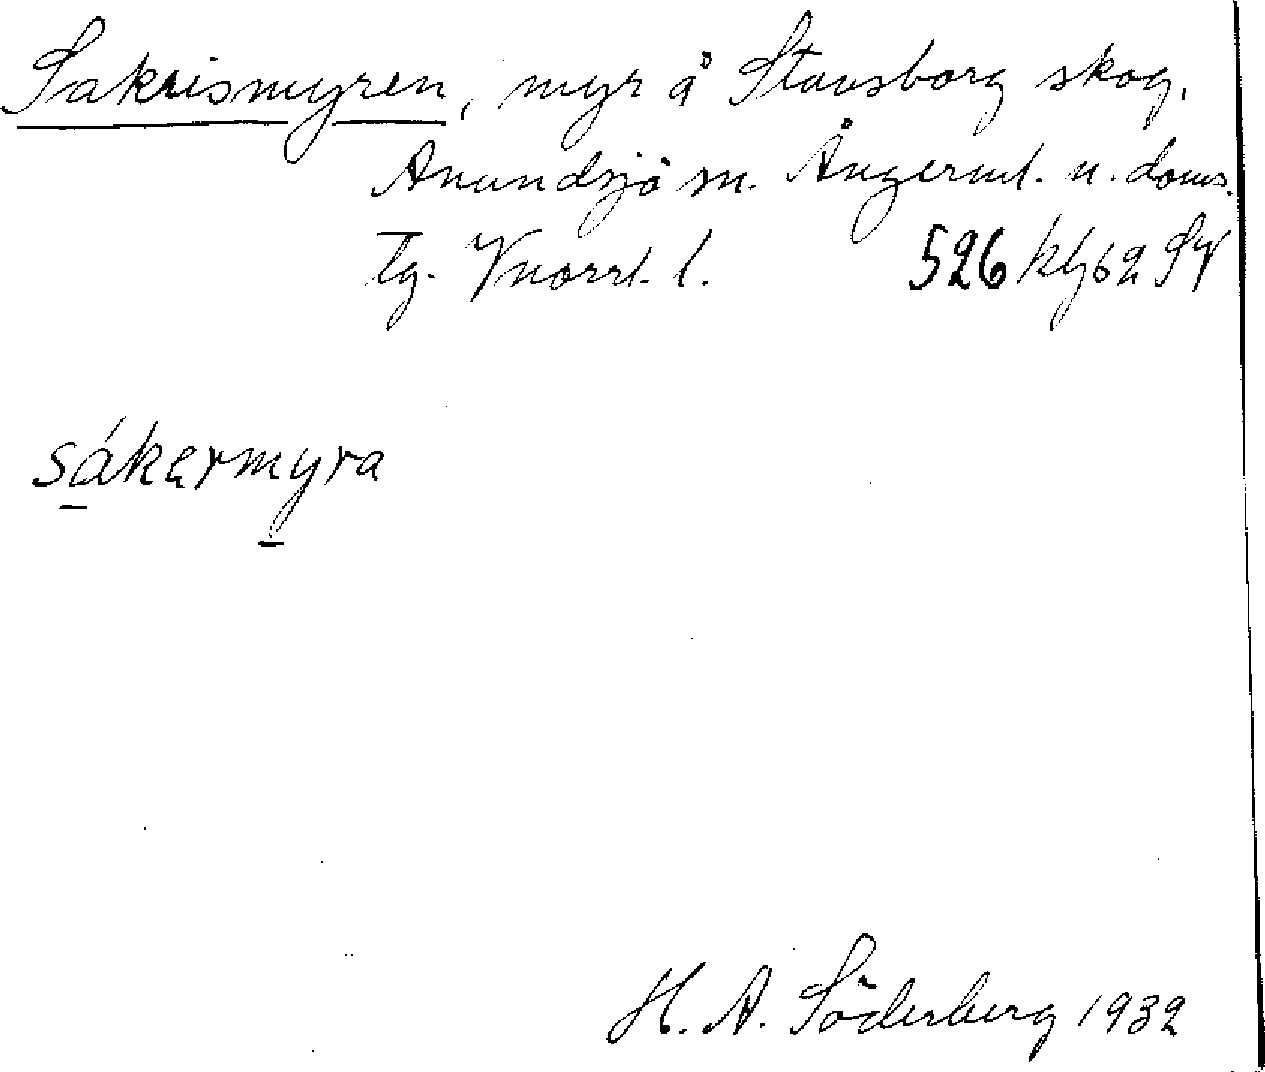 Sakrismyren, myr å Stavsborg skog,
Anundsjö sn. Ångerml. n. doms.
tg. Vnorrl. l. 526 klg62 SV
sákęrmyra
H. A. Söderberg 1932